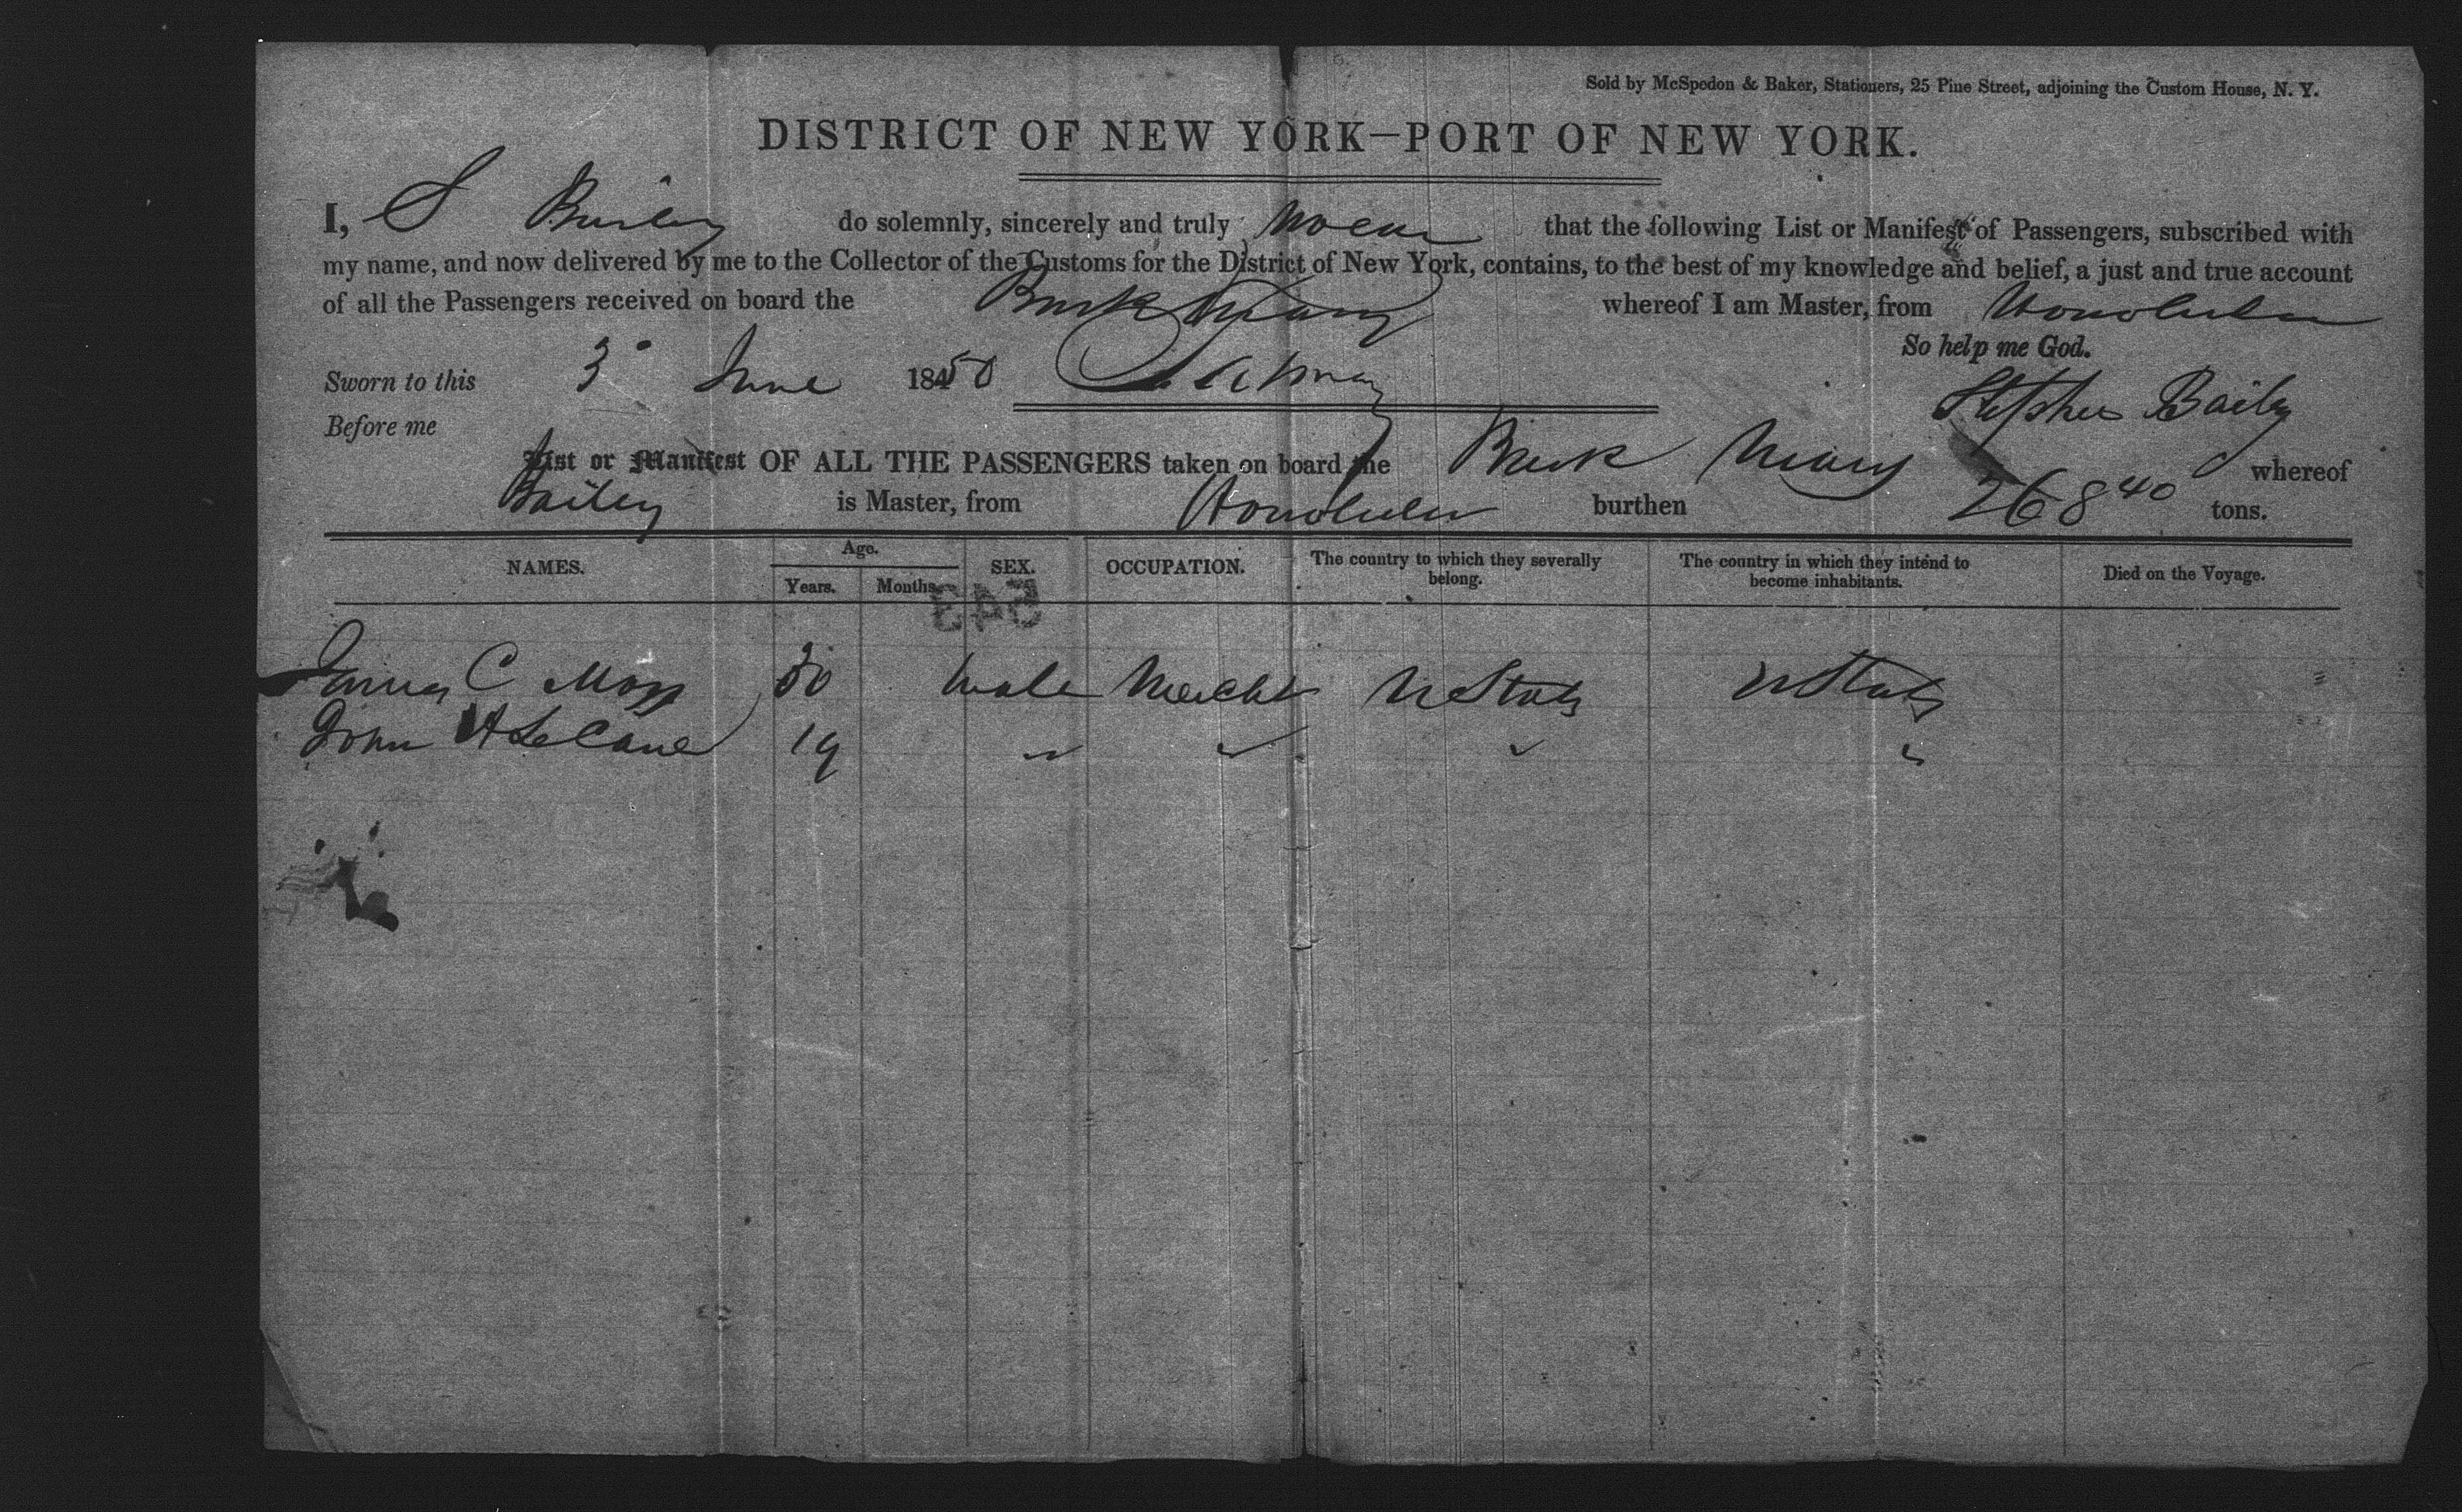 Sold by McSpedon & Baker, Stationers, 25 Pine Street, adjoining the Custom House, N. Y.
DISTRICT OF NEW YORK—PORT OF NEW YORK.
I, S Bailey do solemnly, sincerely and truly swear that the following List or Manifest of Passengers, subscribed with
my name, and now delivered by me to the Collector of the Customs for the District of New York, contains, to the best of my knowledge and belief, a just and true account
of all the Passengers received on board the Bark Mary whereof I am Master, from Honolulu
So help me God.
Sworn to this 3 June 1850
Stephen Bailey
Before me
List or Manifest OF ALL THE PASSENGERS taken on board the Bark Mary whereof
Bailey is Master, from Honolulu burthen 268 40 tons.
NAMES. Age. SEX. OCCUPATION. The country to which they severally belong. The country in which they intend to become inhabitants. Died on the Voyage.
Years. Months.
543
James C Moss 30 male Mercht U States U States
John H 19 " " " "